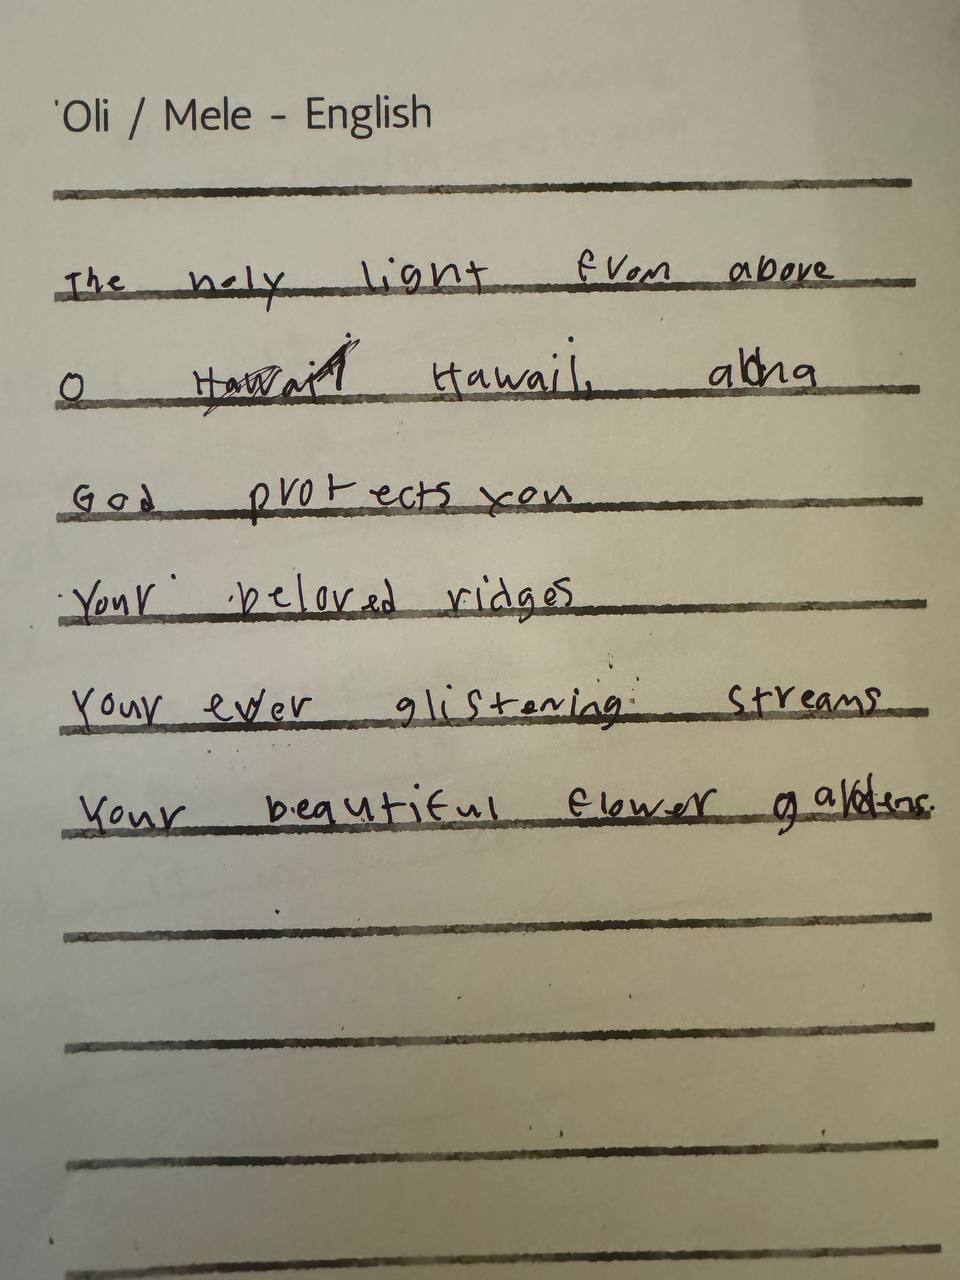 'Oli / Mele - English
The holy light from above
O Hawaii, aloha
God protects you
Your beloved ridges
Your ever glistening streams
Your beautiful flower gardens.